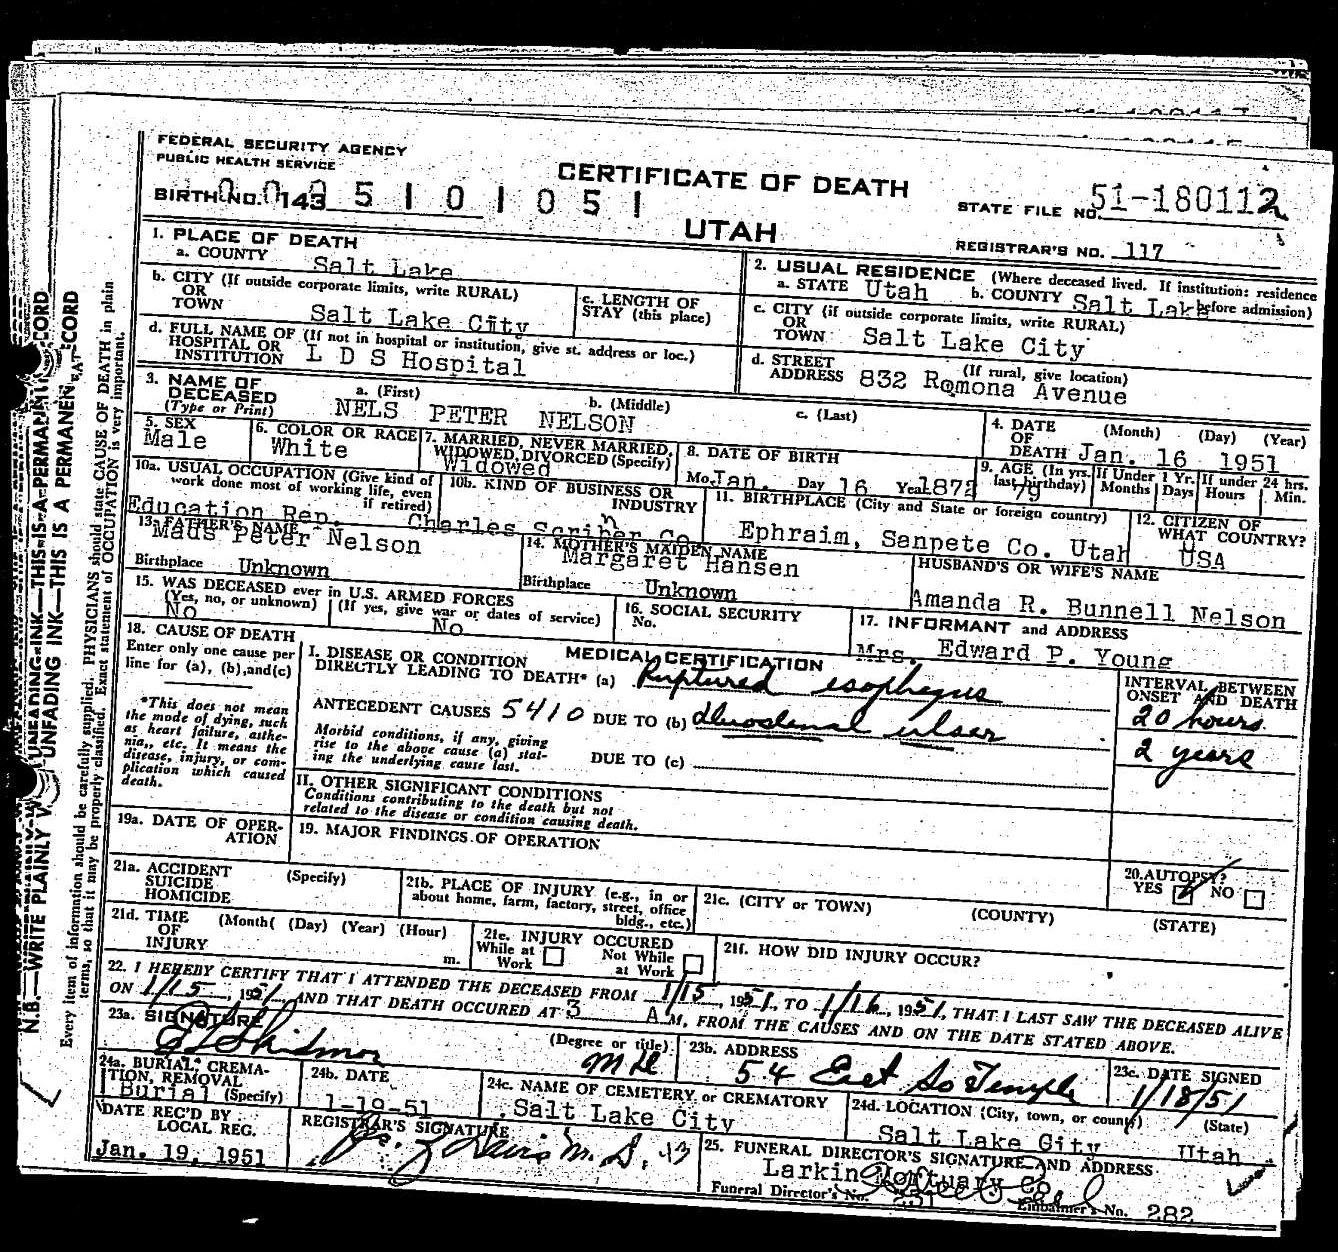 FEDERAL SECURITY AGENCY
PUBLIC HEALTH SERVICE
CERTIFICATE OF DEATH
BIRTH NO. 143
STATE FILE NO. 51-180112
UTAH
REGISTRAR'S NO. 117
1. PLACE OF DEATH
a. COUNTY Salt Lake
b. CITY (If outside corporate limits, write RURAL)
OR
TOWN Salt Lake City
c. LENGTH OF
STAY (this place)
d. FULL NAME OF (If not in hospital or institution, give st. address or loc.)
HOSPITAL OR
INSTITUTION L D S Hospital
2. USUAL RESIDENCE (Where deceased lived. If institution: residence
before admission)
a. STATE Utah b. COUNTY Salt Lake
c. CITY (if outside corporate limits, write RURAL)
OR
TOWN Salt Lake City
d. STREET (If rural, give location)
ADDRESS 832 Romona Avenue
3. NAME OF
DECEASED
(Type or Print)
a. (First) b. (Middle) c. (Last)
NELS PETER NELSON
4. DATE (Month) (Day) (Year)
OF
DEATH Jan. 16 1951
5. SEX
Male
6. COLOR OR RACE
White
7. MARRIED, NEVER MARRIED,
WIDOWED, DIVORCED (Specify)
Widowed
8. DATE OF BIRTH
Mo. Jan. Day 16 Year 1872
9. AGE (In yrs.
last birthday)
79
If Under 1 Yr.
Months Days
If under 24 hrs.
Hours Min.
10a. USUAL OCCUPATION (Give kind of
work done most of working life, even
if retired)
Education Rep.
10b. KIND OF BUSINESS OR
INDUSTRY
Charles Scribner Co.
11. BIRTHPLACE (City and State or foreign country)
Ephraim, Sanpete Co. Utah
12. CITIZEN OF
WHAT COUNTRY?
USA
13. FATHER'S NAME
Mads Peter Nelson
Birthplace Unknown
14. MOTHER'S MAIDEN NAME
Margaret Hansen
Birthplace Unknown
HUSBAND'S OR WIFE'S NAME
Amanda R. Bunnell Nelson
15. WAS DECEASED ever in U.S. ARMED FORCES
(Yes, no, or unknown) (If yes, give war or dates of service)
No No
16. SOCIAL SECURITY
No.
17. INFORMANT and ADDRESS
Mrs. Edward P. Young
18. CAUSE OF DEATH
Enter only one cause per
line for (a), (b), and (c)
*This does not mean
the mode of dying, such
as heart failure, asthe-
nia,, etc. It means the
disease, injury, or com-
plication which caused
death.
MEDICAL CERTIFICATION
I. DISEASE OR CONDITION
DIRECTLY LEADING TO DEATH* (a) Ruptured esophegus
ANTECEDENT CAUSES 5410 DUE TO (b) duodenal ulser
Morbid conditions, if any, giving
rise to the above cause (a) stat-
ing the underlying cause last.
DUE TO (c)
INTERVAL BETWEEN
ONSET AND DEATH
20 hours
2 years
II. OTHER SIGNIFICANT CONDITIONS
Conditions contributing to the death but not
related to the disease or condition causing death.
19a. DATE OF OPER-
ATION
19. MAJOR FINDINGS OF OPERATION
20. AUTOPSY?
YES NO
21a. ACCIDENT (Specify)
SUICIDE
HOMICIDE
21b. PLACE OF INJURY (e.g., in or
about home, farm, factory, street, office
bldg., etc.)
21c. (CITY or TOWN) (COUNTY) (STATE)
21d. TIME (Month( (Day) (Year) (Hour)
OF
INJURY m.
21e. INJURY OCCURED
While at Work
Not While at Work
21f. HOW DID INJURY OCCUR?
22. I HEREBY CERTIFY THAT I ATTENDED THE DECEASED FROM 1/15, 1951, TO 1/16, 1951, THAT I LAST SAW THE DECEASED ALIVE
ON 1/15, 1951, AND THAT DEATH OCCURED AT 3 A M, FROM THE CAUSES AND ON THE DATE STATED ABOVE.
23a. SIGNATURE (Degree or title)
Skidmor MD
23b. ADDRESS
54 East So Temple
23c. DATE SIGNED
1/18/51
24a. BURIAL, CREMA-
TION, REMOVAL
Burial (Specify)
24b. DATE
1-19-51
24c. NAME OF CEMETERY or CREMATORY
Salt Lake City
24d. LOCATION (City, town, or county) (State)
Salt Lake City Utah
DATE REC'D BY
LOCAL REG.
Jan. 19, 1951
REGISTRAR'S SIGNATURE
Davis M. D.
25. FUNERAL DIRECTOR'S SIGNATURE AND ADDRESS
Larkin Mortuary Co
Funeral Director's No. 251 Embalmer's No. 282
N.B.—WRITE PLAINLY
UNFADING INK—THIS IS A PERMANENT RECORD
Every item of information should be carefully supplied. PHYSICIANS should state CAUSE OF DEATH in plain
terms, so that it may be properly classified. Exact statement of OCCUPATION is very important.